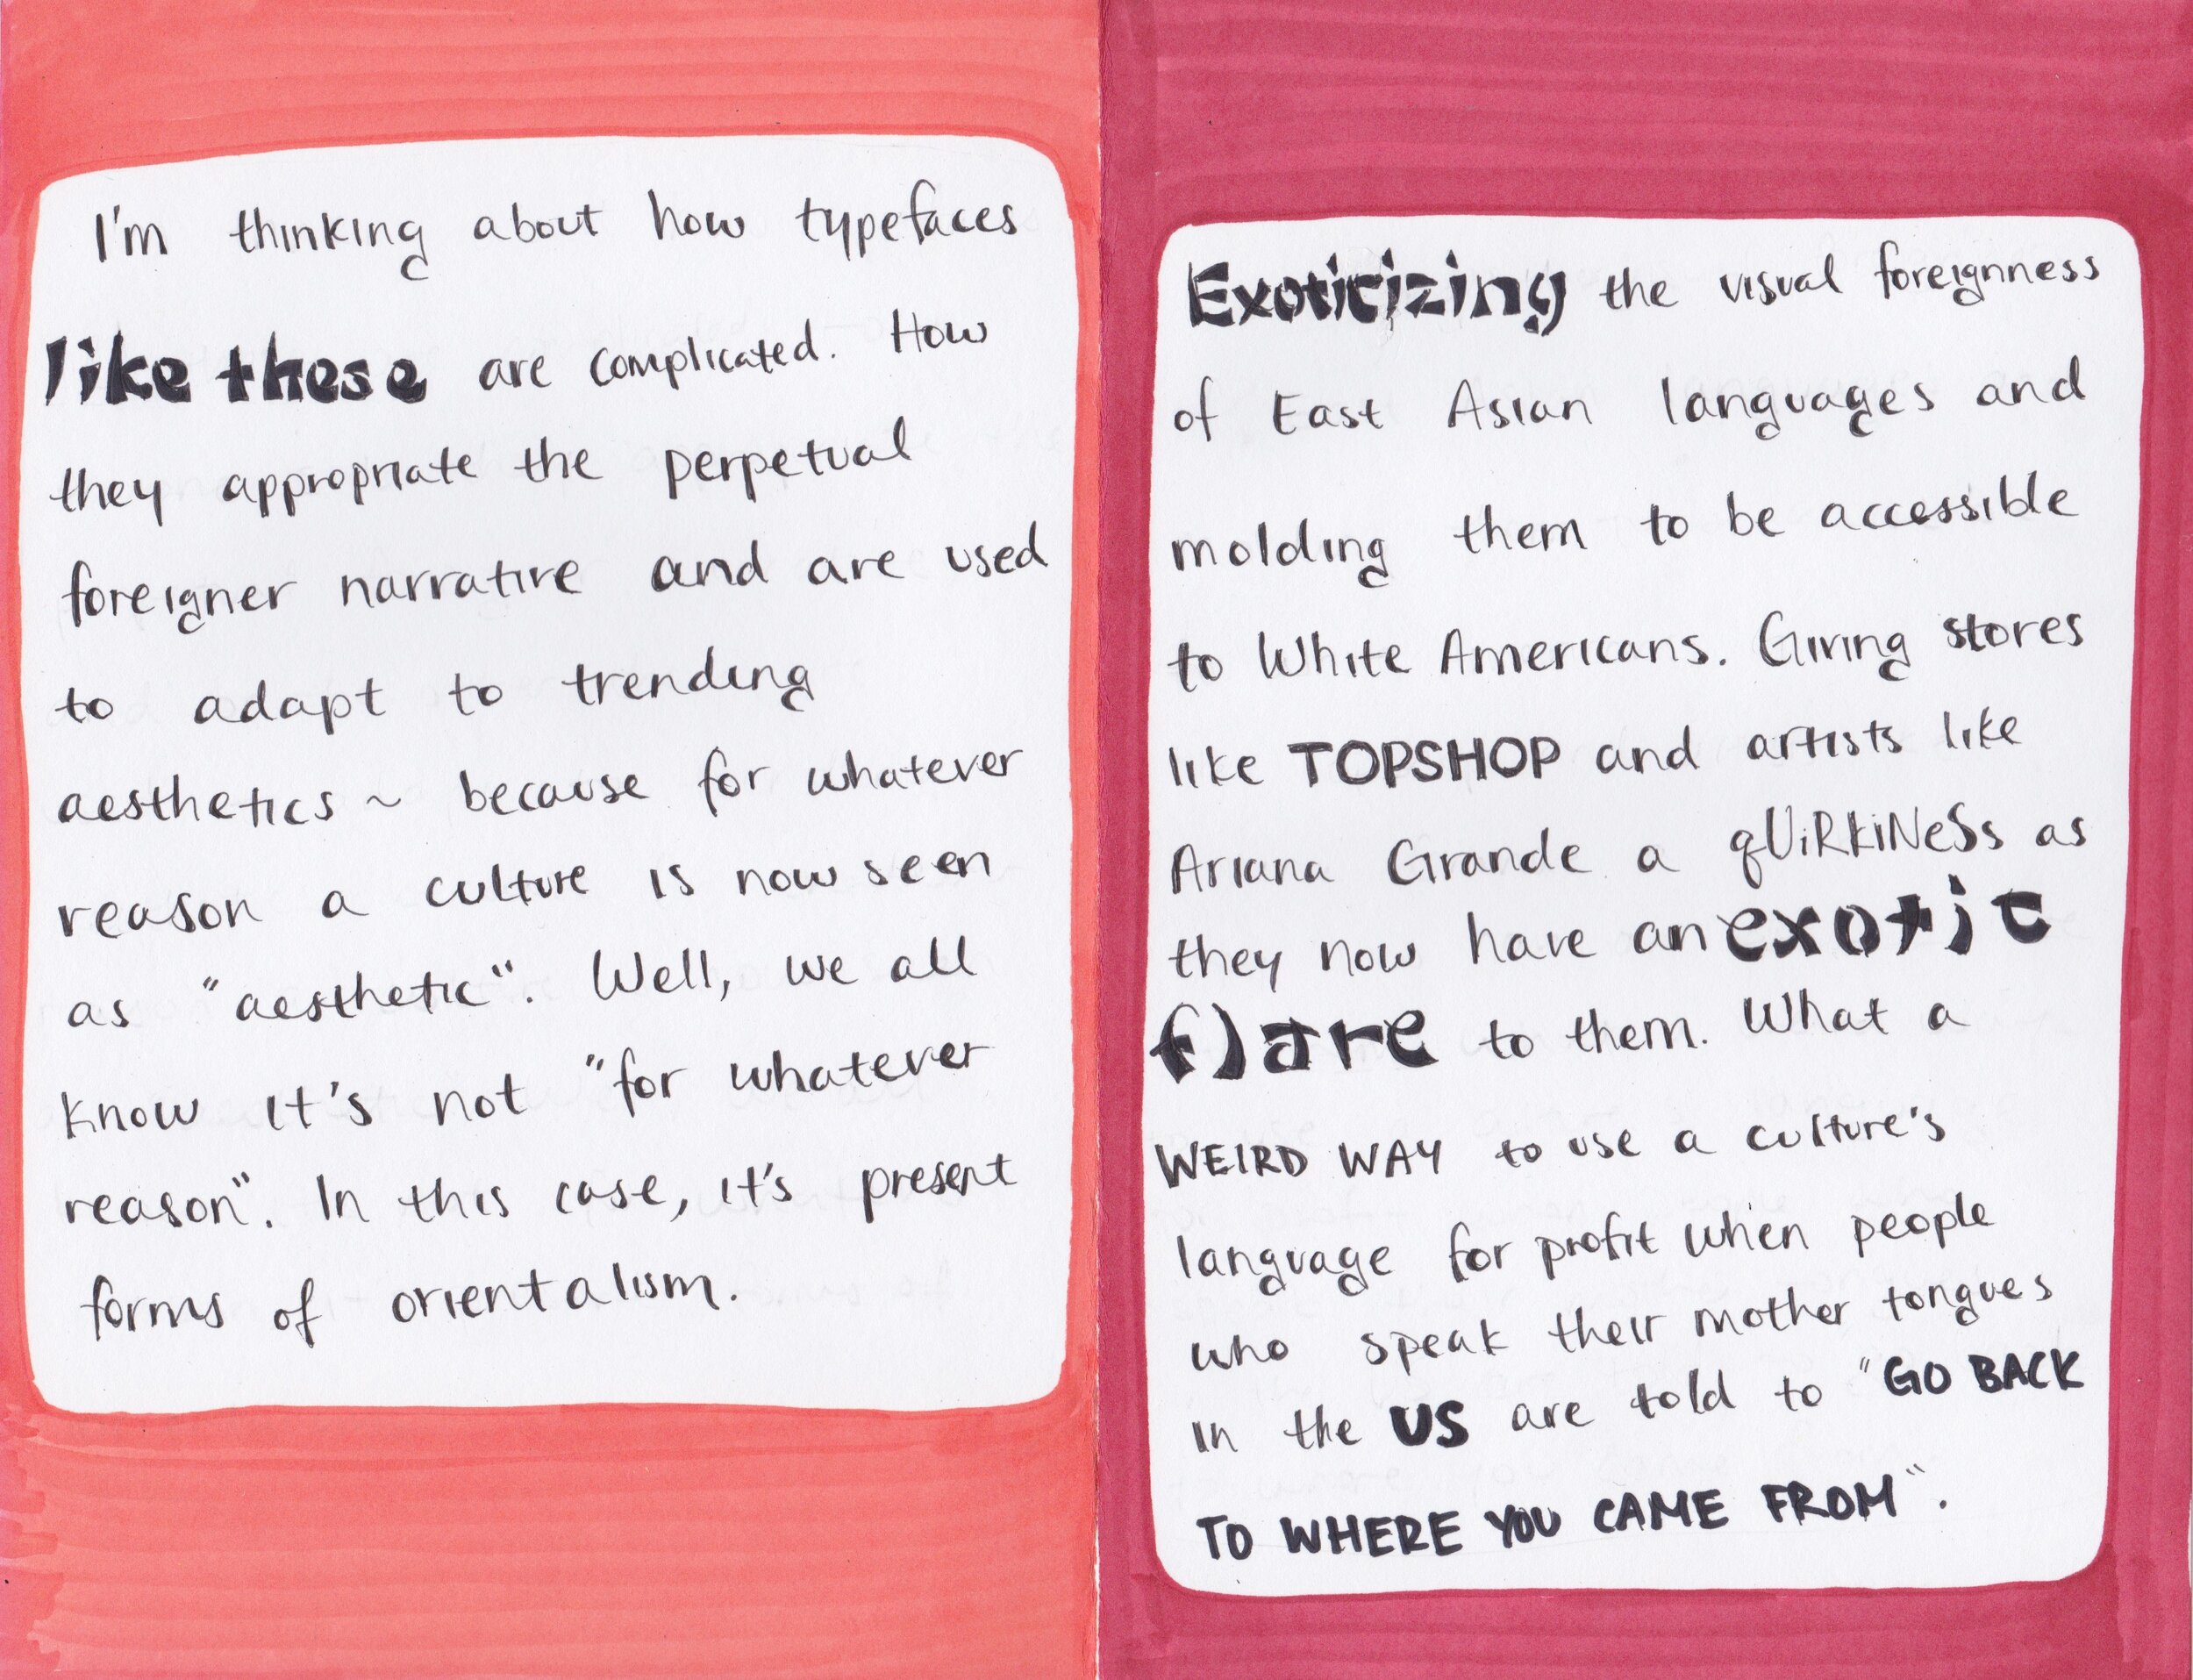 I'm thinking about how typefaces
like these are complicated. How
they appropriate the perpetual
foreigner narrative and are used
to adapt to trending
aesthetics ~ because for whatever
reason a culture is now seen
as "aesthetic". Well, we all
know it's not "for whatever
reason". In this case, it's present
forms of orientalism.
Exoticizing the visual foreignness
of East Asian languages and
molding them to be accessible
to White Americans. Giving stores
like TOPSHOP and artists like
Ariana Grande a qUiRKiNeSs as
they now have an exotic
flare to them. What a
WEIRD WAY to use a culture's
language for profit when people
who speak their mother tongues
in the US are told to "GO BACK
TO WHERE YOU CAME FROM".